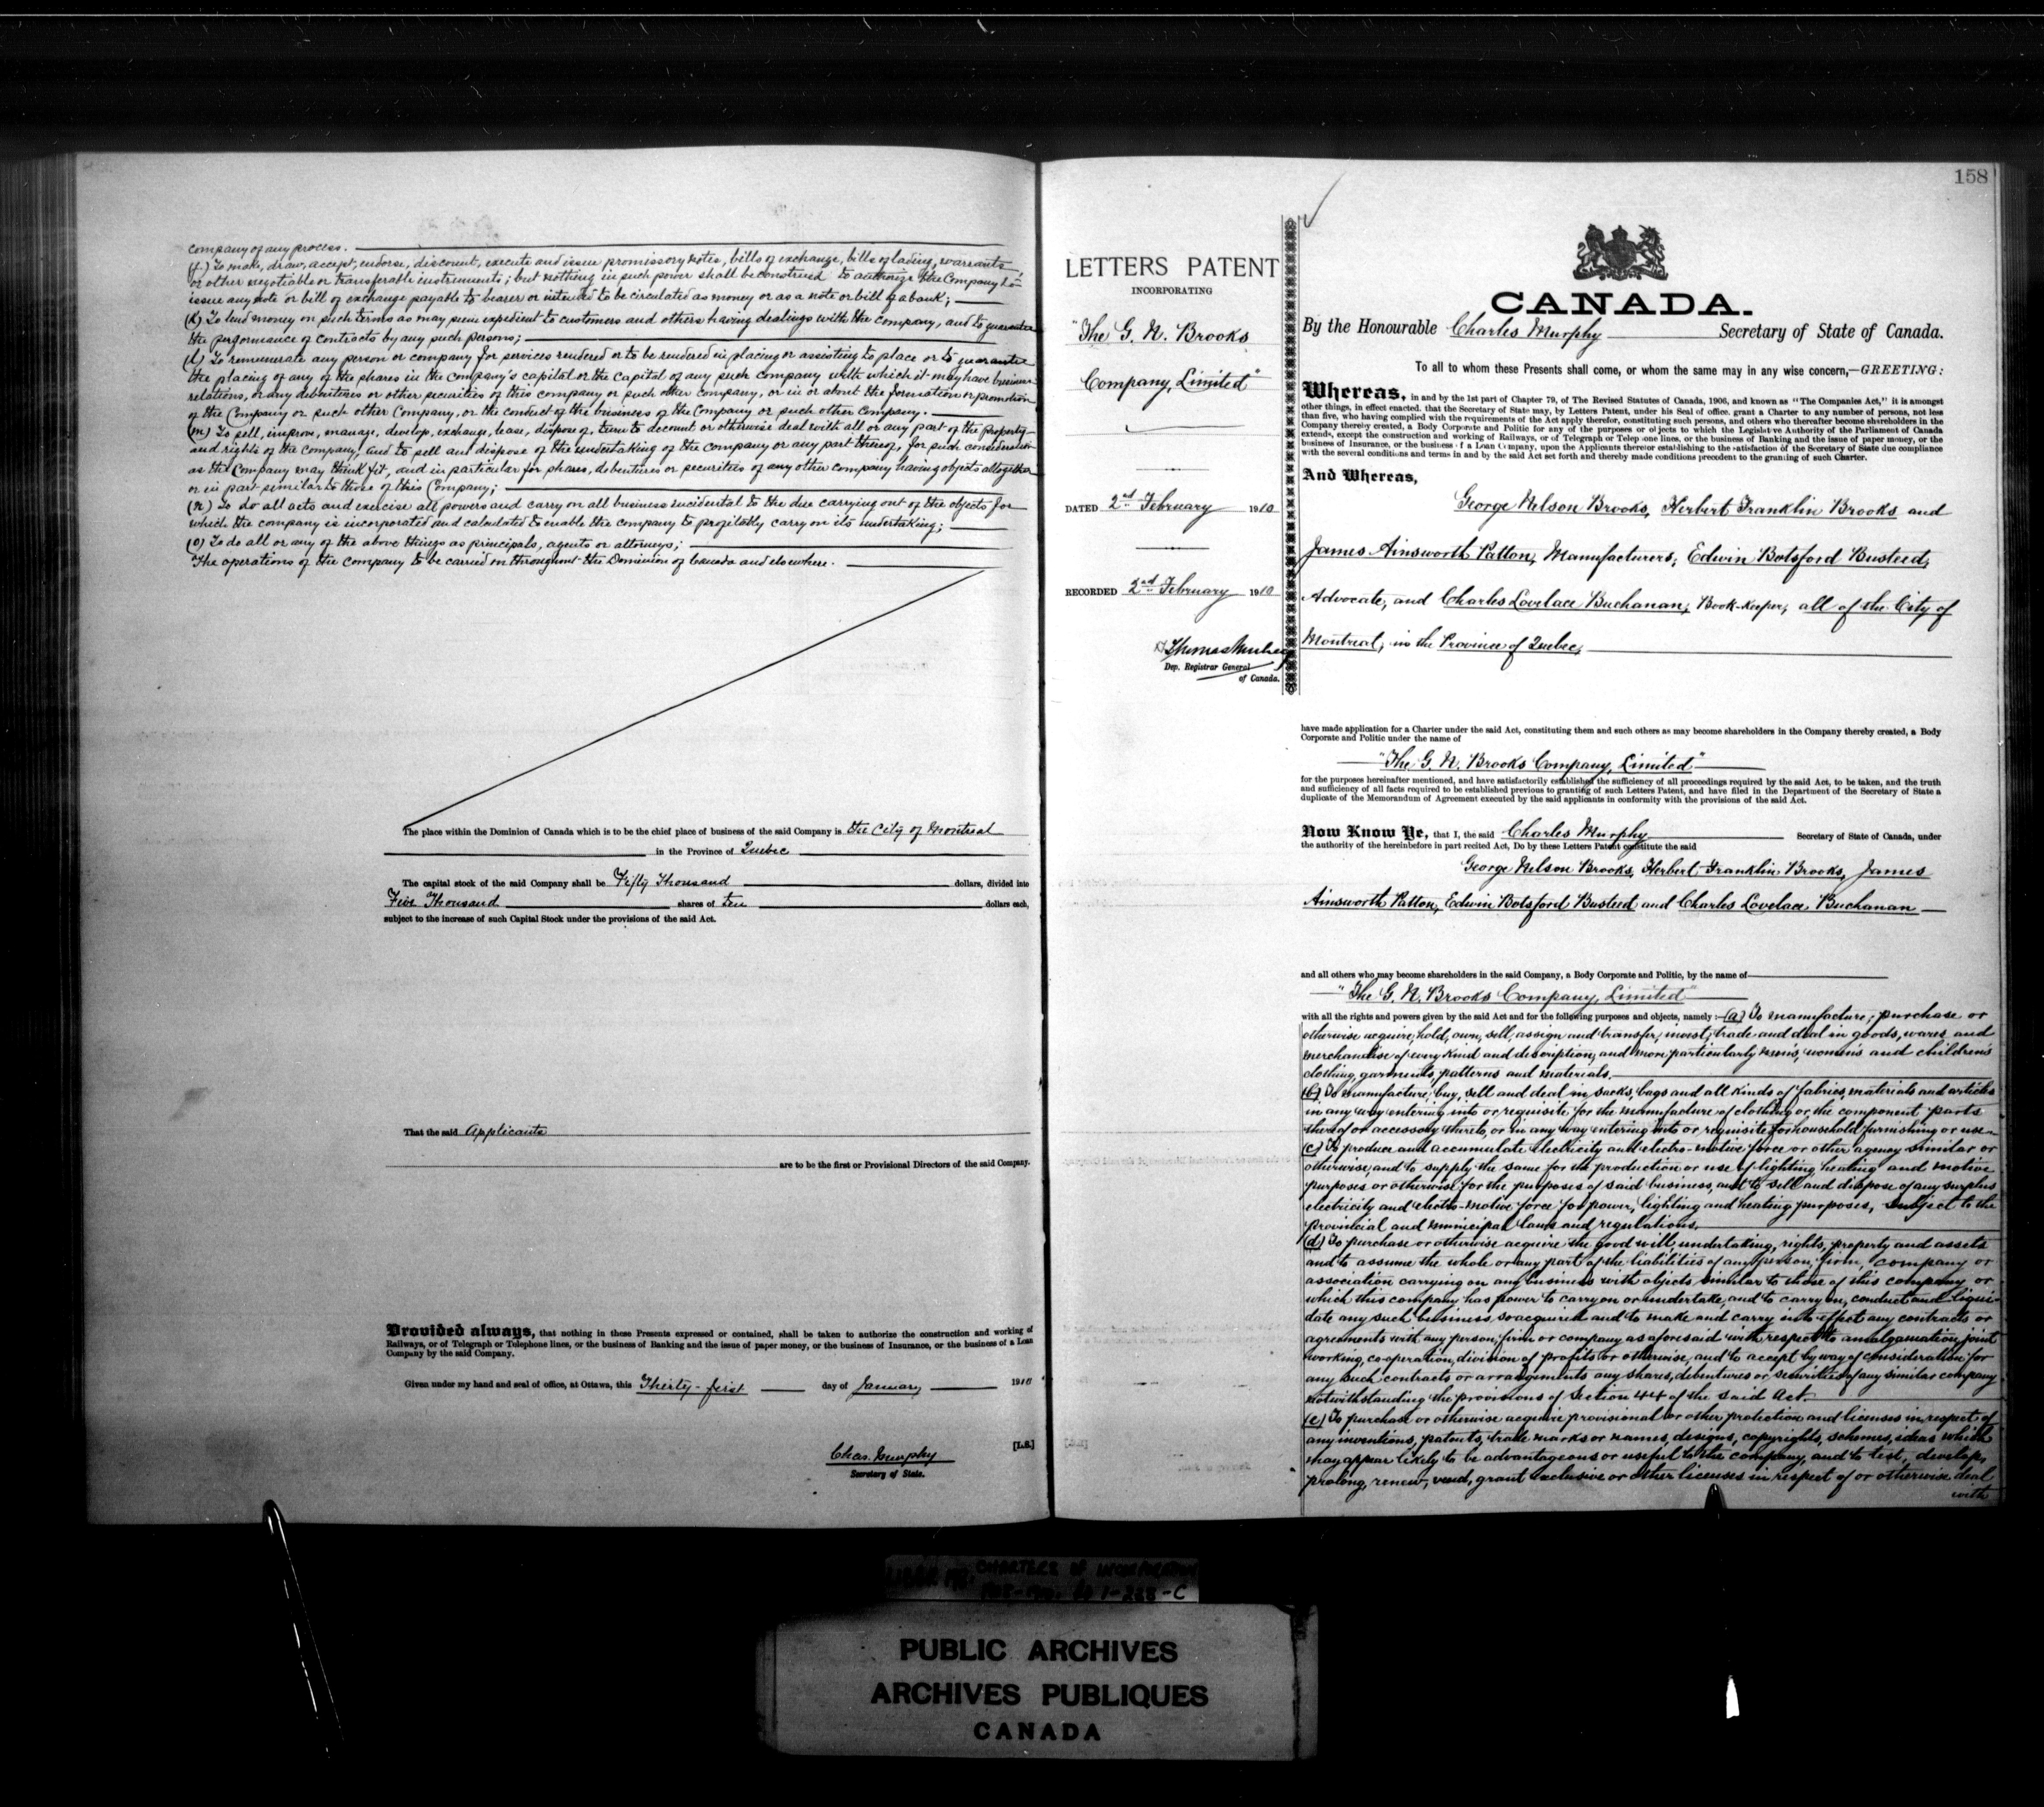 company of any process.
(j) To make, draw, accept, endorse, discount, execute and issue promissory notes, bills of exchange, bills of lading, warrants
or other negotiable or transferable instruments; but nothing in such power shall be construed to authorize the Company to
issue any note or bill of exchange payable to bearer or intended to be circulated as money or as a note or bill of a bank;
(k) To lend money on such terms as may seem expedient to customers and others having dealings with the company, and to guarantee
the performance of contracts by any such persons;
(l) To remunerate any person or company for services rendered or to be rendered in placing or assisting to place or to guarantee
the placing of any of the shares in the company's capital or the capital of any such company with which it may have business
relations, or any debentures or other securities of this company or such other company, or in or about the formation or promotion
of the Company or such other Company, or the conduct of the business of the Company or such other Company.
(m) To sell, improve, manage, develop, exchange, lease, dispose of, turn to account or otherwise deal with all or any part of the property
and rights of the company, and to sell and dispose of the undertaking of the company or any part thereof, for such consideration
as the Company may think fit, and in particular for shares, debentures or securities of any other company having objects altogether
or in part similar to those of this Company;
(n) To do all acts and exercise all powers and carry on all business incidental to the due carrying out of the objects for
which the company is incorporated and calculated to enable the company to profitably carry on its undertaking;
(o) To do all or any of the above things as principals, agents or attorneys;
The operations of the company to be carried on throughout the Dominion of Canada and elsewhere.
The place within the Dominion of Canada which is to be the chief place of business of the said Company is the City of Montreal
in the Province of Quebec
The capital stock of the said Company shall be Fifty Thousand dollars, divided into
Five Thousand shares of ten dollars each,
subject to the increase of such Capital Stock under the provisions of the said Act.
That the said Applicants
are to be the first or Provisional Directors of the said Company.
Provided always, that nothing in these Presents expressed or contained, shall be taken to authorize the construction and working of
Railways, or of Telegraph or Telephone lines, or the business of Banking and the issue of paper money, or the business of Insurance, or the business of a Loan
Company by the said Company.
Given under my hand and seal of office, at Ottawa, this Thirty-first day of January 1910
[L.S.]
Chas. Murphy
Secretary of State.
158
LETTERS PATENT
INCORPORATING
"The G. N. Brooks
Company, Limited"
DATED 2nd February 1910
RECORDED 2nd February 1910
Dep. Registrar General
of Canada.
CANADA.
By the Honourable Charles Murphy Secretary of State of Canada.
To all to whom these Presents shall come, or whom the same may in any wise concern,—GREETING:
Whereas, in and by the 1st part of Chapter 79, of The Revised Statutes of Canada, 1906, and known as "The Companies Act," it is amongst
other things, in effect enacted, that the Secretary of State may, by Letters Patent, under his Seal of office, grant a Charter to any number of persons, not less
than five, who having complied with the requirements of the Act apply therefor, constituting such persons, and others who thereafter become shareholders in the
Company thereby created, a Body Corporate and Politic for any of the purposes or objects to which the Legislative Authority of the Parliament of Canada
extends, except the construction and working of Railways, or of Telegraph or Telephone lines, or the business of Banking and the issue of paper money, or the
business of Insurance, or the business of a Loan Company, upon the Applicants therefor establishing to the satisfaction of the Secretary of State due compliance
with the several conditions and terms in and by the said Act set forth and thereby made conditions precedent to the granting of such Charter.
And Whereas,
George Nelson Brooks, Herbert Franklin Brooks and
James Ainsworth Patton, Manufacturers, Edwin Botsford Busteed,
Advocate, and Charles Lovelace Buchanan, Book-keeper, all of the City of
Montreal, in the Province of Quebec,
have made application for a Charter under the said Act, constituting them and such others as may become shareholders in the Company thereby created, a Body
Corporate and Politic under the name of
"The G. N. Brooks Company, Limited"
for the purposes hereinafter mentioned, and have satisfactorily established the sufficiency of all proceedings required by the said Act, to be taken, and the truth
and sufficiency of all facts required to be established previous to granting of such Letters Patent, and have filed in the Department of the Secretary of State a
duplicate of the Memorandum of Agreement executed by the said applicants in conformity with the provisions of the said Act.
Now Know Ye, that I, the said Charles Murphy Secretary of State of Canada, under
the authority of the hereinbefore in part recited Act, Do by these Letters Patent constitute the said
George Nelson Brooks, Herbert Franklin Brooks, James
Ainsworth Patton, Edwin Botsford Busteed and Charles Lovelace Buchanan
and all others who may become shareholders in the said Company, a Body Corporate and Politic, by the name of
"The G. N. Brooks Company, Limited"
with all the rights and powers given by the said Act and for the following purposes and objects, namely:—(a) To manufacture, purchase or
otherwise acquire, hold, own, sell, assign and transfer, invest, trade and deal in goods, wares and
merchandise of every kind and description, and more particularly men's, women's and children's
clothing, garments, patterns and materials.
(b) To manufacture, buy, sell and deal in sacks, bags and all kinds of fabrics, materials and articles
in any way entering into or requisite for the manufacture of clothing or the component parts
thereof or accessory thereto, or in any way entering into or requisite for household furnishing or use.
(c) To produce and accumulate electricity and electro-motive force or other agency similar or
otherwise, and to supply the same for the production or use of lighting heating and motive
purposes or otherwise for the purposes of said business, and to sell and dispose of any surplus
electricity and electro-motive force for power, lighting and heating purposes, subject to the
provincial and municipal laws and regulations.
(d) To purchase or otherwise acquire the good will, undertaking, rights, property and assets
and to assume the whole or any part of the liabilities of any person, firm, company or
association carrying on any business with objects similar to those of this company or
which this company has power to carry on or undertake, and to carry on, conduct and liqui-
date any such business so acquired and to make and carry into effect any contracts or
agreements with any person, firm or company as aforesaid with respect to amalgamation, joint
working, co-operation, division of profits or otherwise, and to accept by way of consideration for
any such contracts or arrangements any shares, debentures or securities of any similar company
notwithstanding the provisions of Section 44 of the said Act.
(e) To purchase or otherwise acquire provisional or other protection and licenses in respect of
any inventions, patents, trade marks or names, designs, copyrights, schemes, ideas which
may appear likely to be advantageous or useful to the company, and to test, develop,
prolong, renew, vend, grant exclusive or other licenses in respect of or otherwise deal
with
CHARTERS OF INCORPORATION
PUBLIC ARCHIVES
ARCHIVES PUBLIQUES
CANADA